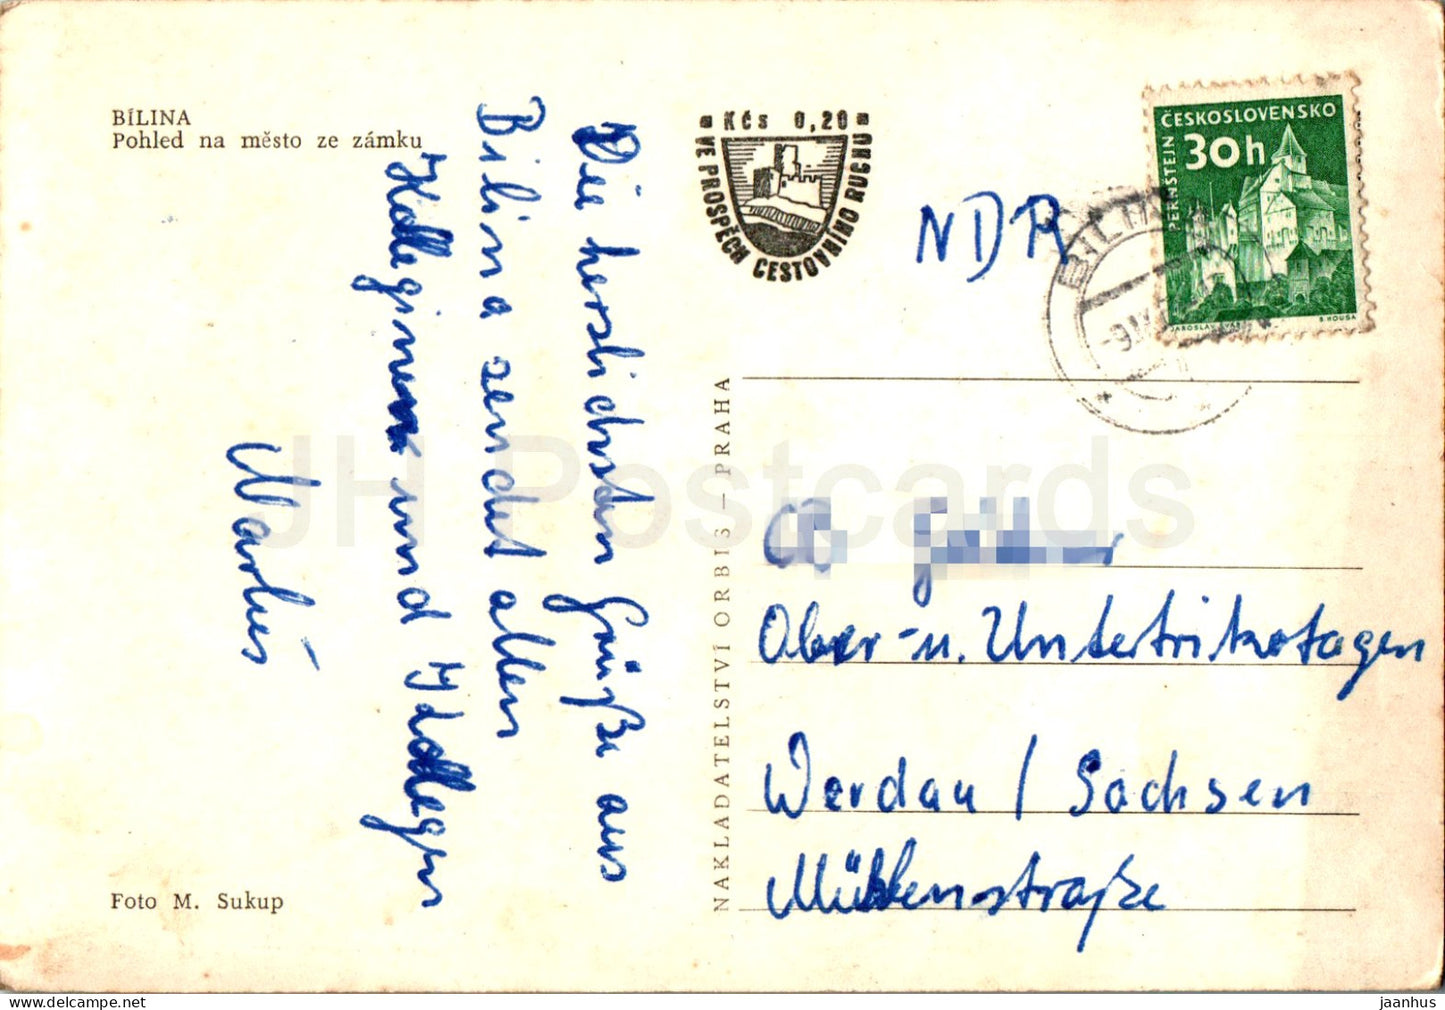 BÍLINA
Pohled na město ze zámku
Die herzlichsten Grüße aus
Bilina sendet allen
Kolleginnen und Kollegen
Foto M. Sukup
NAKLADATELSTVÍ ORBIS — PRAHA
Kčs 0,20
VE PROSPĚCH CESTOVNÍHO RUCHU
NDR
ČESKOSLOVENSKO
30h
PERNŠTEJN
B. HOUSA
BÍLINA
Ober- u. Untertrikotagen
Werdau / Sachsen
Mühlenstraße
JH Postcards
www.delcampe.net
jaanhus